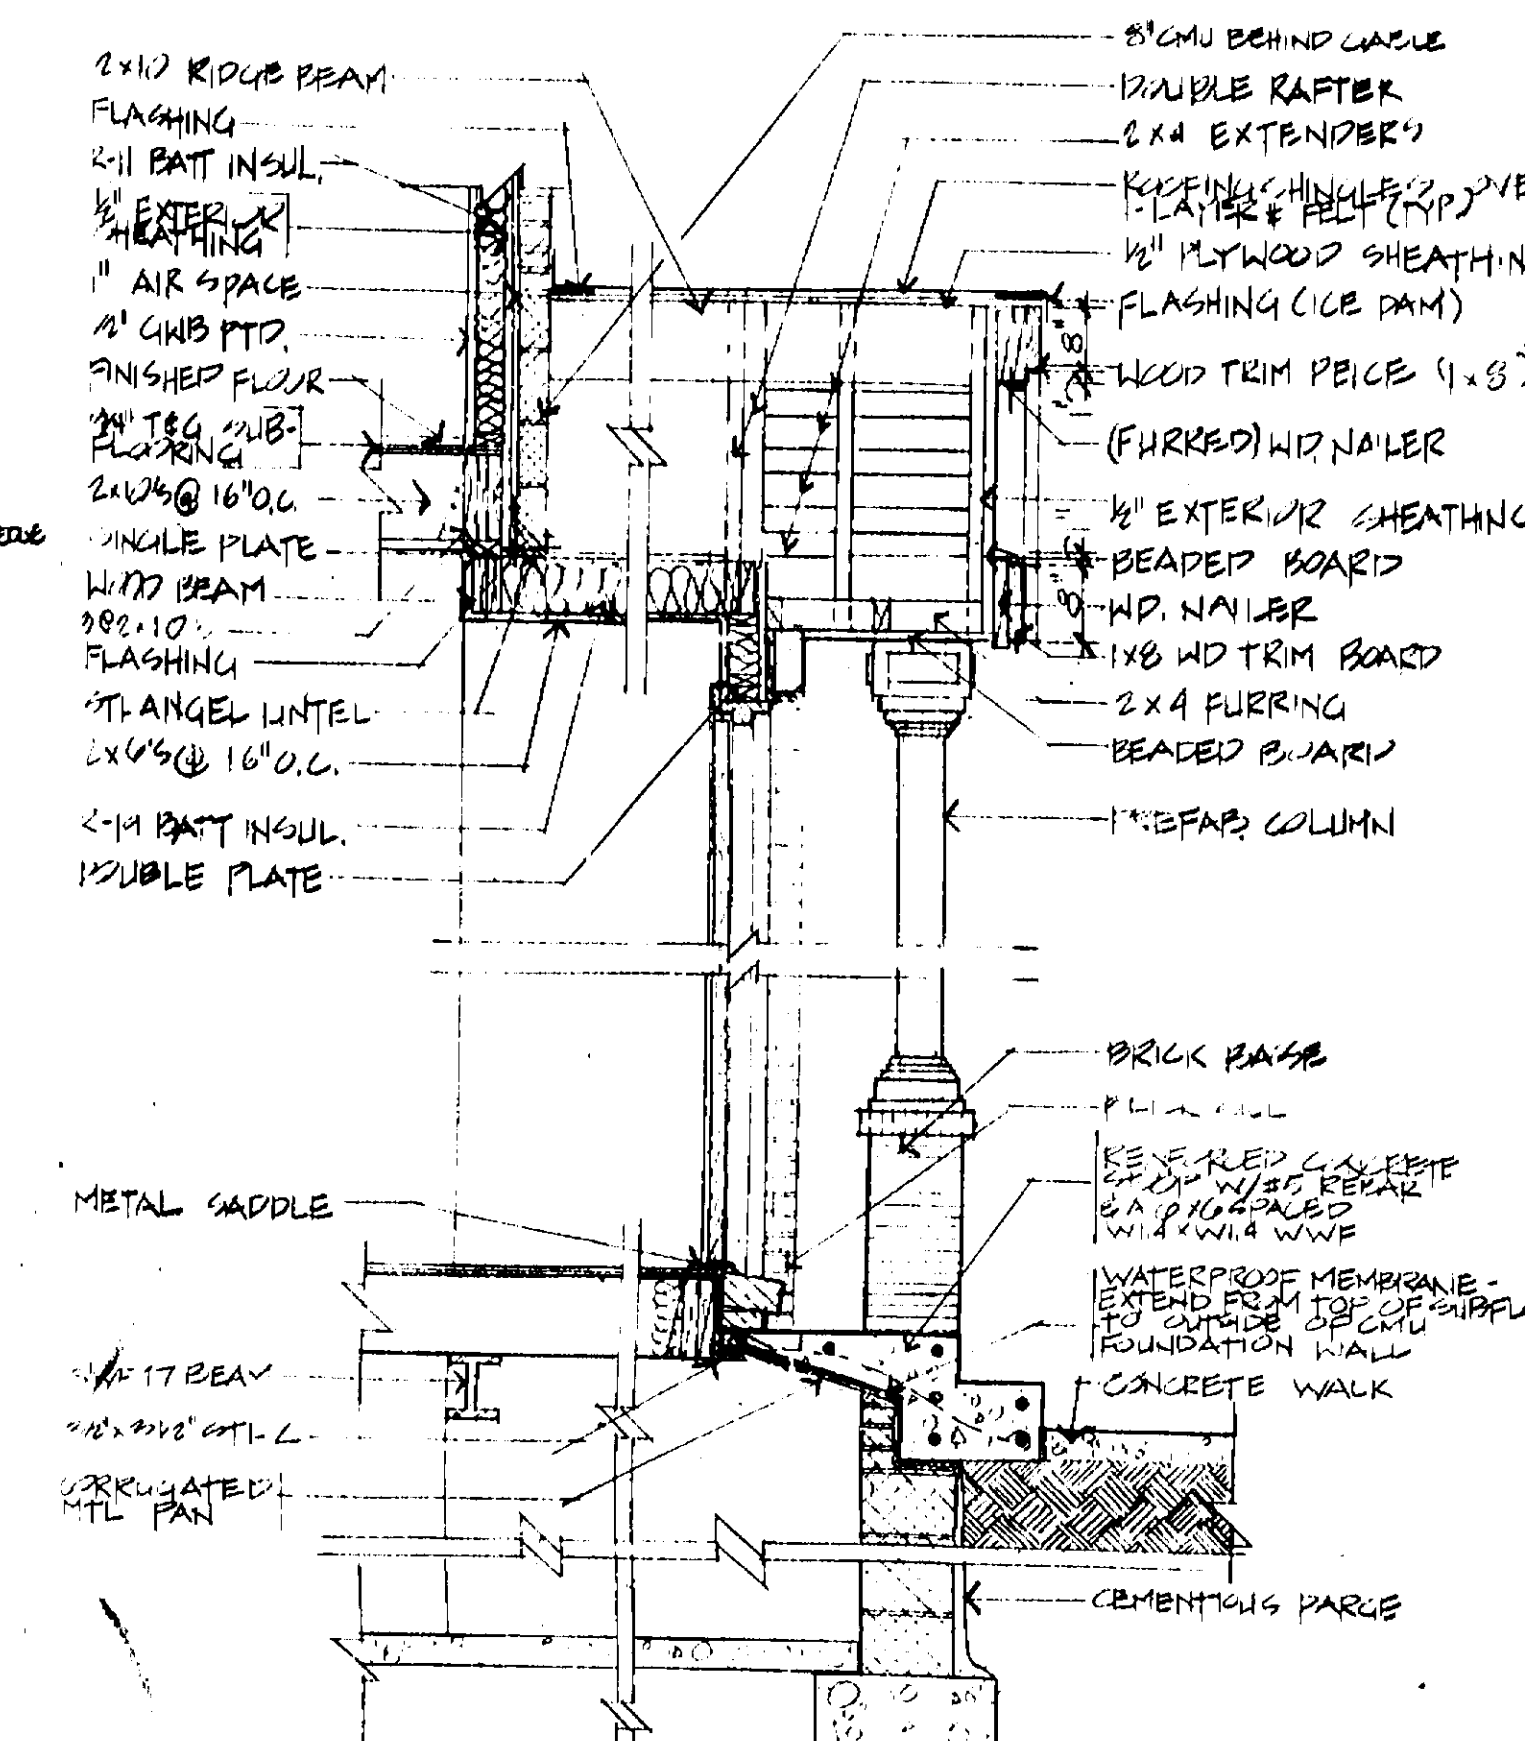 2x10 RIDGE BEAM
FLASHING
R-11 BATT INSUL.
1/2" EXTERIOR
SHEATHING
1" AIR SPACE
1/2" GWB PTD.
FINISHED FLOOR
3/4" T&G SUB-
FLOORING
2x10'S @ 16" O.C.
SINGLE PLATE
WOOD BEAM
3@2x10'S
FLASHING
STL ANGEL LINTEL
2x6'S @ 16" O.C.
R-19 BATT INSUL.
DOUBLE PLATE
METAL SADDLE
17 BEAM
3 1/2" x 3 1/2" STL L
CORRUGATED
MTL PAN
8" CMU BEHIND GABLE
DOUBLE RAFTER
2 X 4 EXTENDERS
ROOFING SHINGLES OVE
LAYER # FELT (TYP)
1/2" PLYWOOD SHEATHIN
FLASHING (ICE DAM)
8"
WOOD TRIM PEICE (1x8
(FURRED) WD. NAILER
1/2" EXTERIOR SHEATHING
BEADED BOARD
8"
WD. NAILER
1X8 WD TRIM BOARD
2 X 4 FURRING
BEADED BOARD
PREFAB. COLUMN
BRICK BASE
REINFORCED CONCRETE
STOOP W/ #5 REBAR
& A 6X6 SPACED
W1.4 x W1.4 WWF
WATERPROOF MEMBRANE-
EXTEND FROM TOP OF SUBFL
TO OUTSIDE OF CMU
FOUNDATION WALL
CONCRETE WALK
CEMENTIOUS PARGE